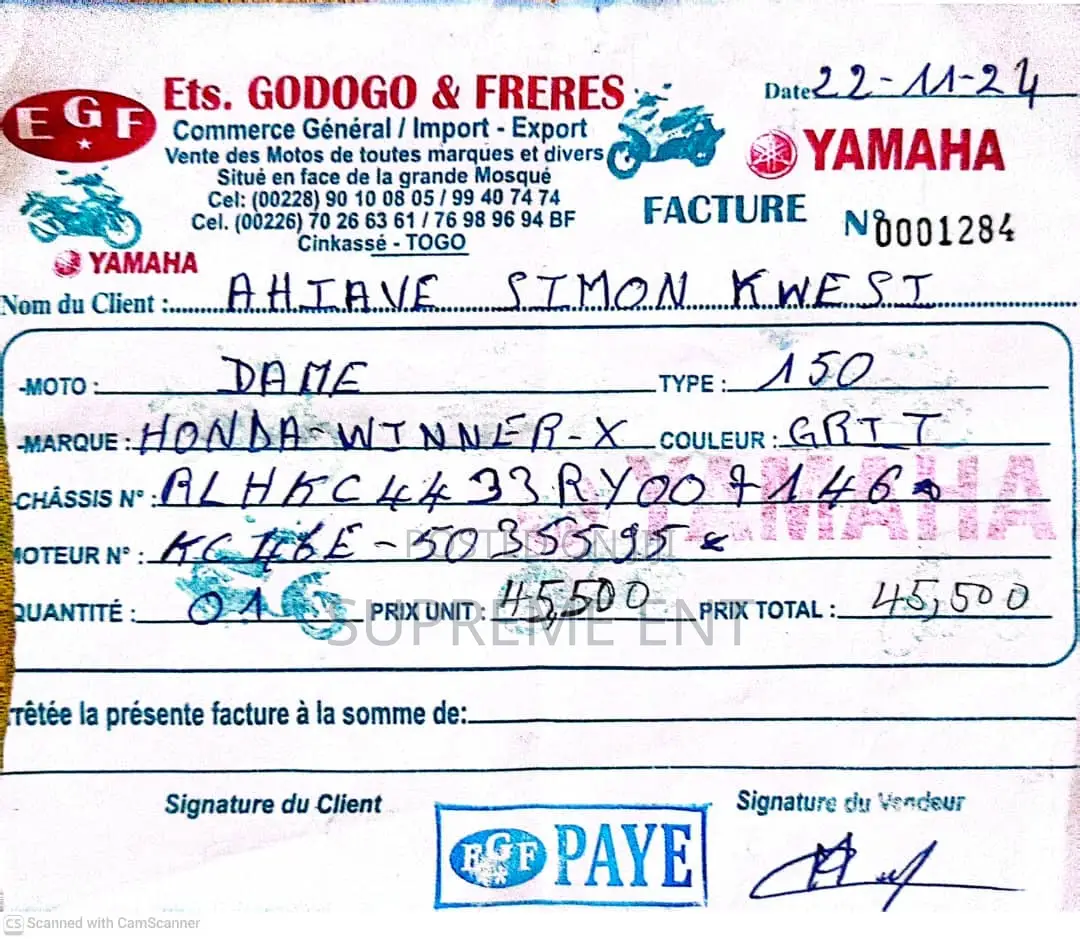 Date 22-11-24
EGF
Ets. GODOGO & FRERES
Commerce Général / Import - Export
Vente des Motos de toutes marques et divers
Situé en face de la grande Mosqué
Cel: (00228) 90 10 08 05 / 99 40 74 74
Cel. (00226) 70 26 63 61 / 76 98 96 94 BF
Cinkassé - TOGO
YAMAHA
YAMAHA
FACTURE N° 0001284
Nom du Client : AHIAVE SIMON KWEST
-MOTO : DAME TYPE : 150
-MARQUE : HONDA-WINNER-X COULEUR : GRIT
CHÂSSIS N° : RLHKC4433RY007146
YAMAHA
MOTEUR N° : KC44BE-5035595
POSTED ON JIJI
QUANTITÉ : 01 PRIX UNIT : 45,500 PRIX TOTAL : 45,500
SUPREME ENT
rrêtée la présente facture à la somme de:
Signature du Client
Signature du Vendeur
EGF PAYE
CS Scanned with CamScanner